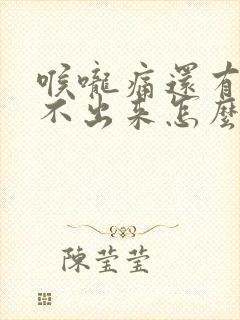 喉嚨痛還有
不出來怎麼
陳莹莹